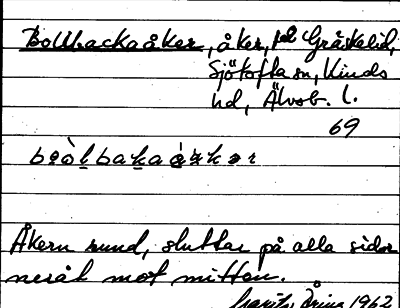 Bollbackaåker, åker, på Gråskelid,
Sjötofta sn, Kinds
hd, Älvsb. l.
69
Åkern rund, sluttar på alla sidor
neråt mot mitten.
1962